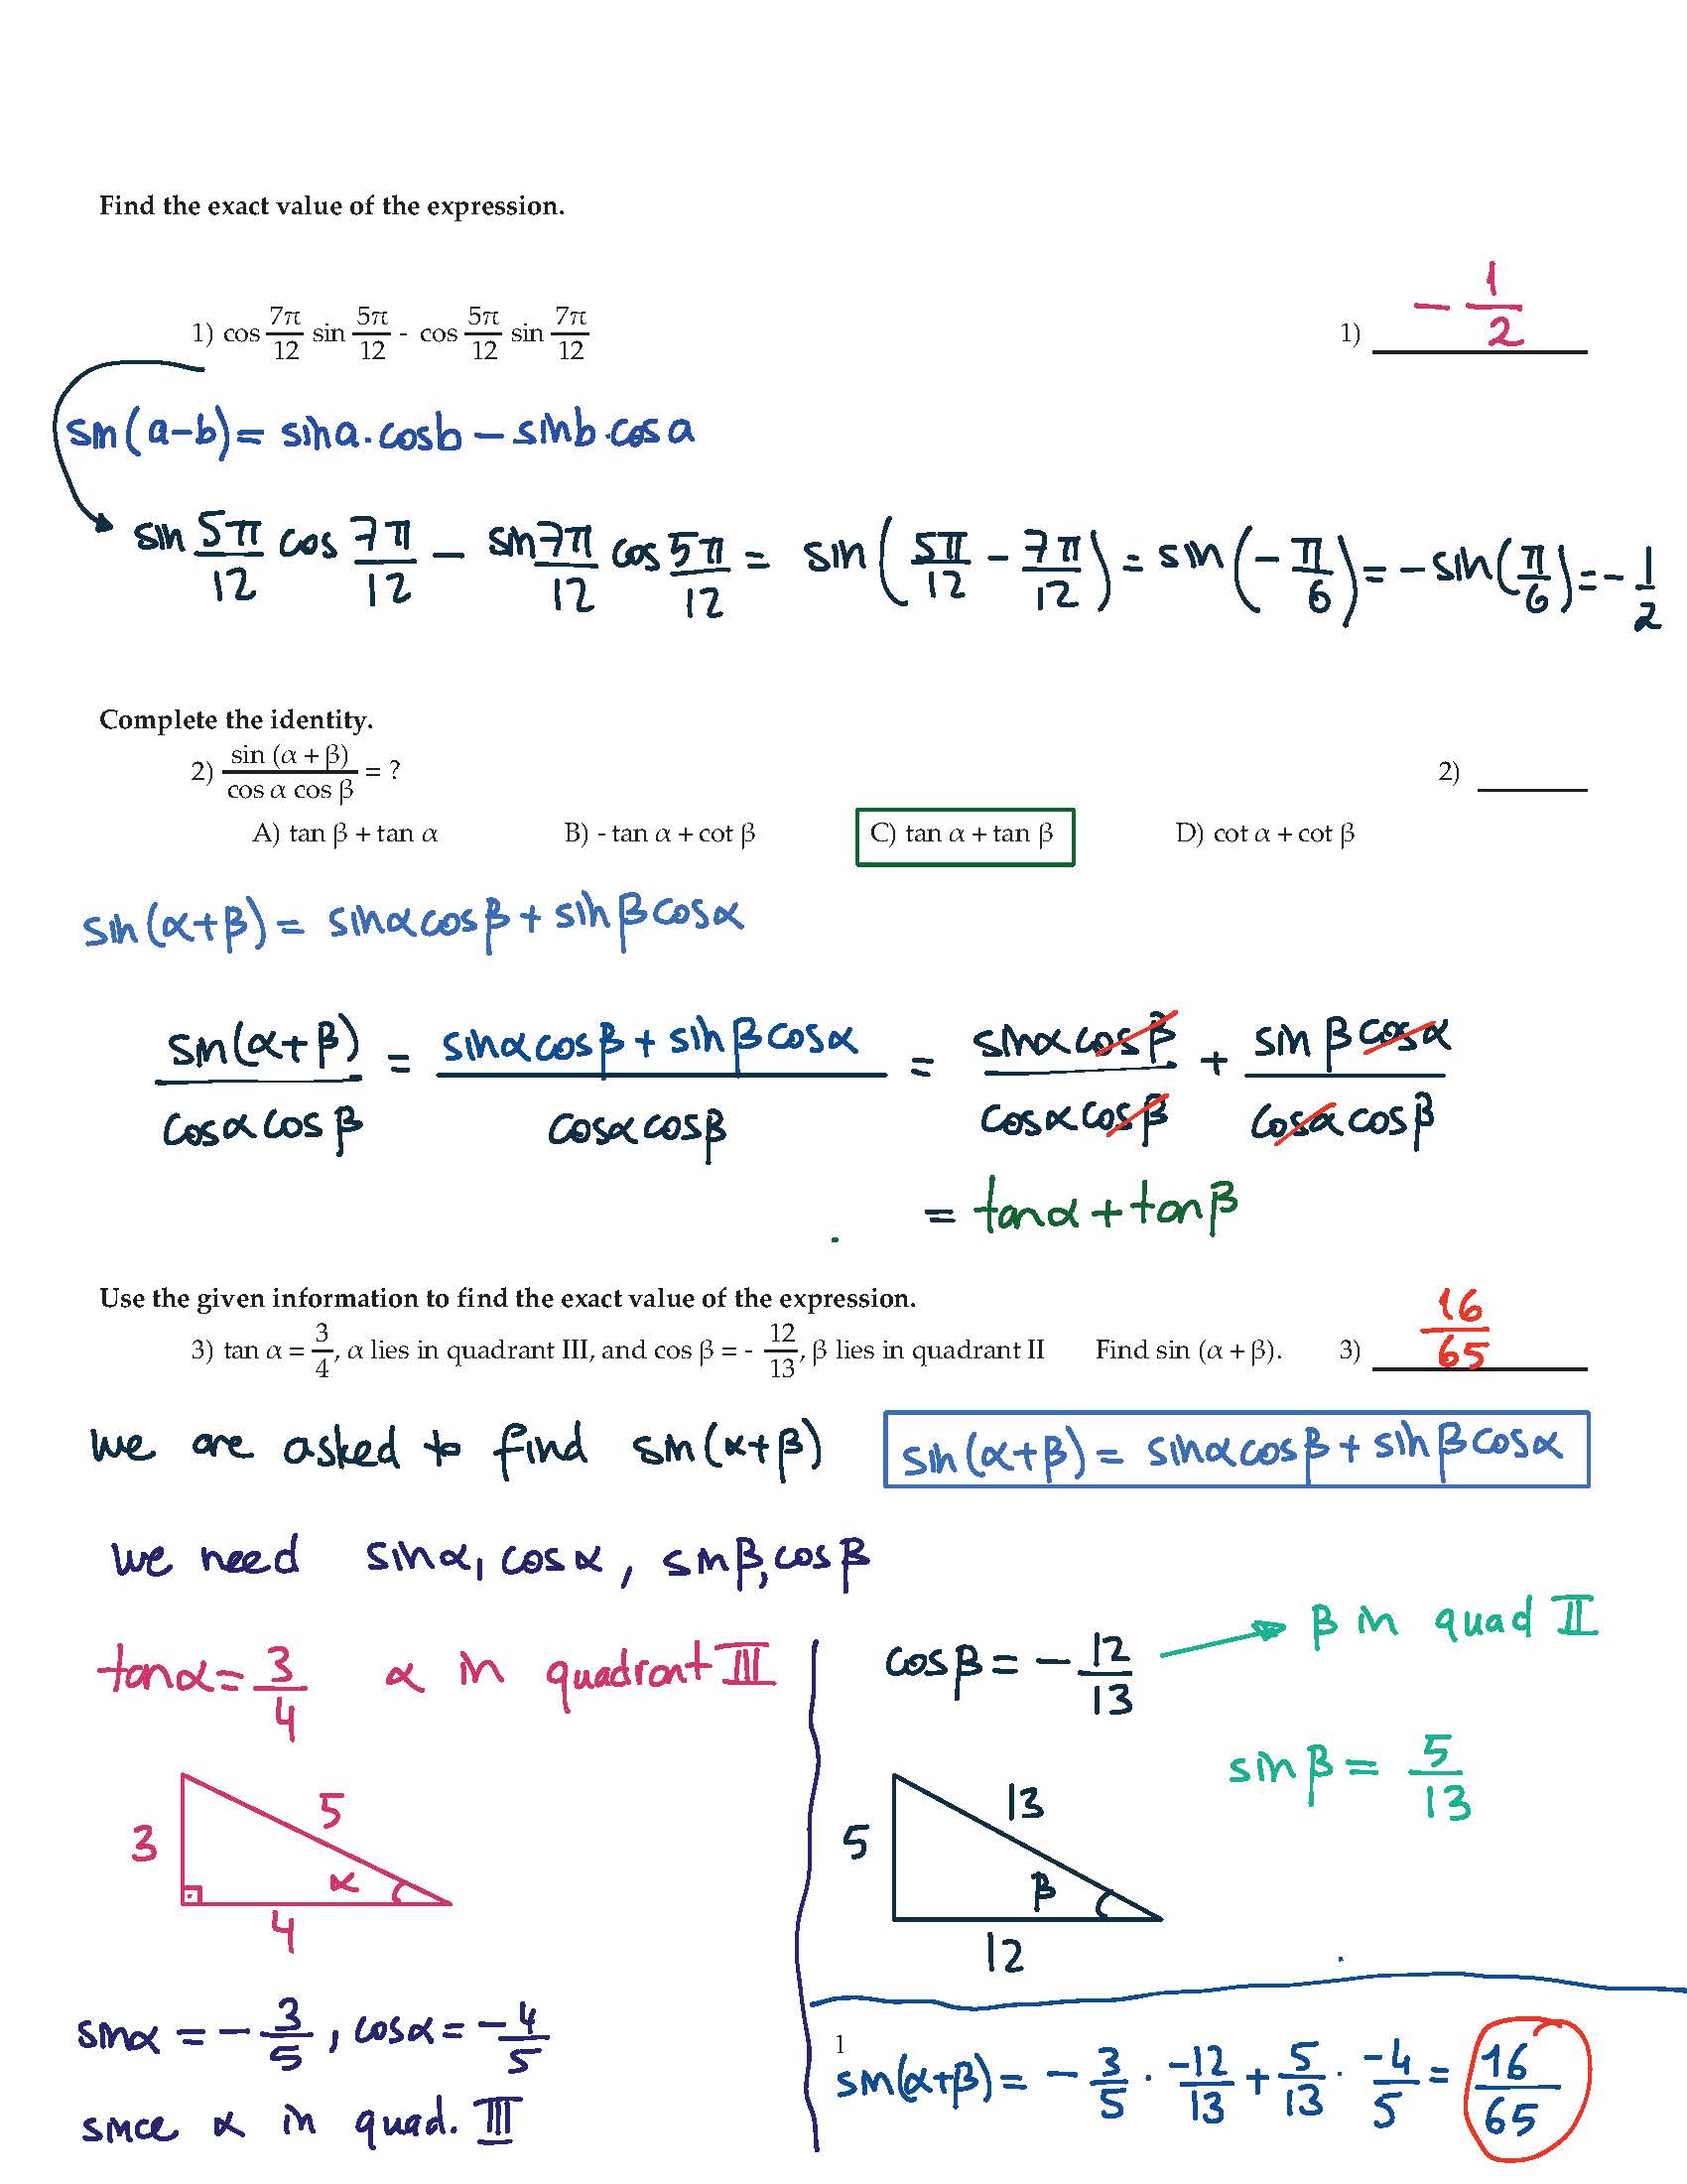 Find the exact value of the expression.
1) cos 7π/12 sin 5π/12 - cos 5π/12 sin 7π/12
1) - 1/2
sin(a-b) = sina.cosb - sinb.cosa
sin 5π/12 cos 7π/12 - sin 7π/12 cos 5π/12 = sin(5π/12 - 7π/12) = sin(-π/6) = -sin(π/6) = -1/2
Complete the identity.
2) sin (α + β)/cos α cos β = ?
2)
A) tan β + tan α B) - tan α + cot β C) tan α + tan β D) cot α + cot β
sin(α+β) = sinαcosβ + sinβcosα
sin(α+β)/cosαcosβ = sinαcosβ + sinβcosα/cosαcosβ = sinαcosβ/cosαcosβ + sinβcosα/cosαcosβ
= tanα + tanβ
Use the given information to find the exact value of the expression.
3) tan α = 3/4, α lies in quadrant III, and cos β = - 12/13, β lies in quadrant II Find sin (α + β).
3) 16/65
we are asked to find sin(α+β)
sin(α+β) = sinαcosβ + sinβcosα
we need sinα, cosα, sinβ, cosβ
tanα = 3/4 α in quadrant III
3
5
α
4
sinα = -3/5, cosα = -4/5
since α in quad. III
cosβ = -12/13
β in quad II
sinβ = 5/13
5
13
β
12
1
sin(α+β) = -3/5 . -12/13 + 5/13 . -4/5 = 16/65